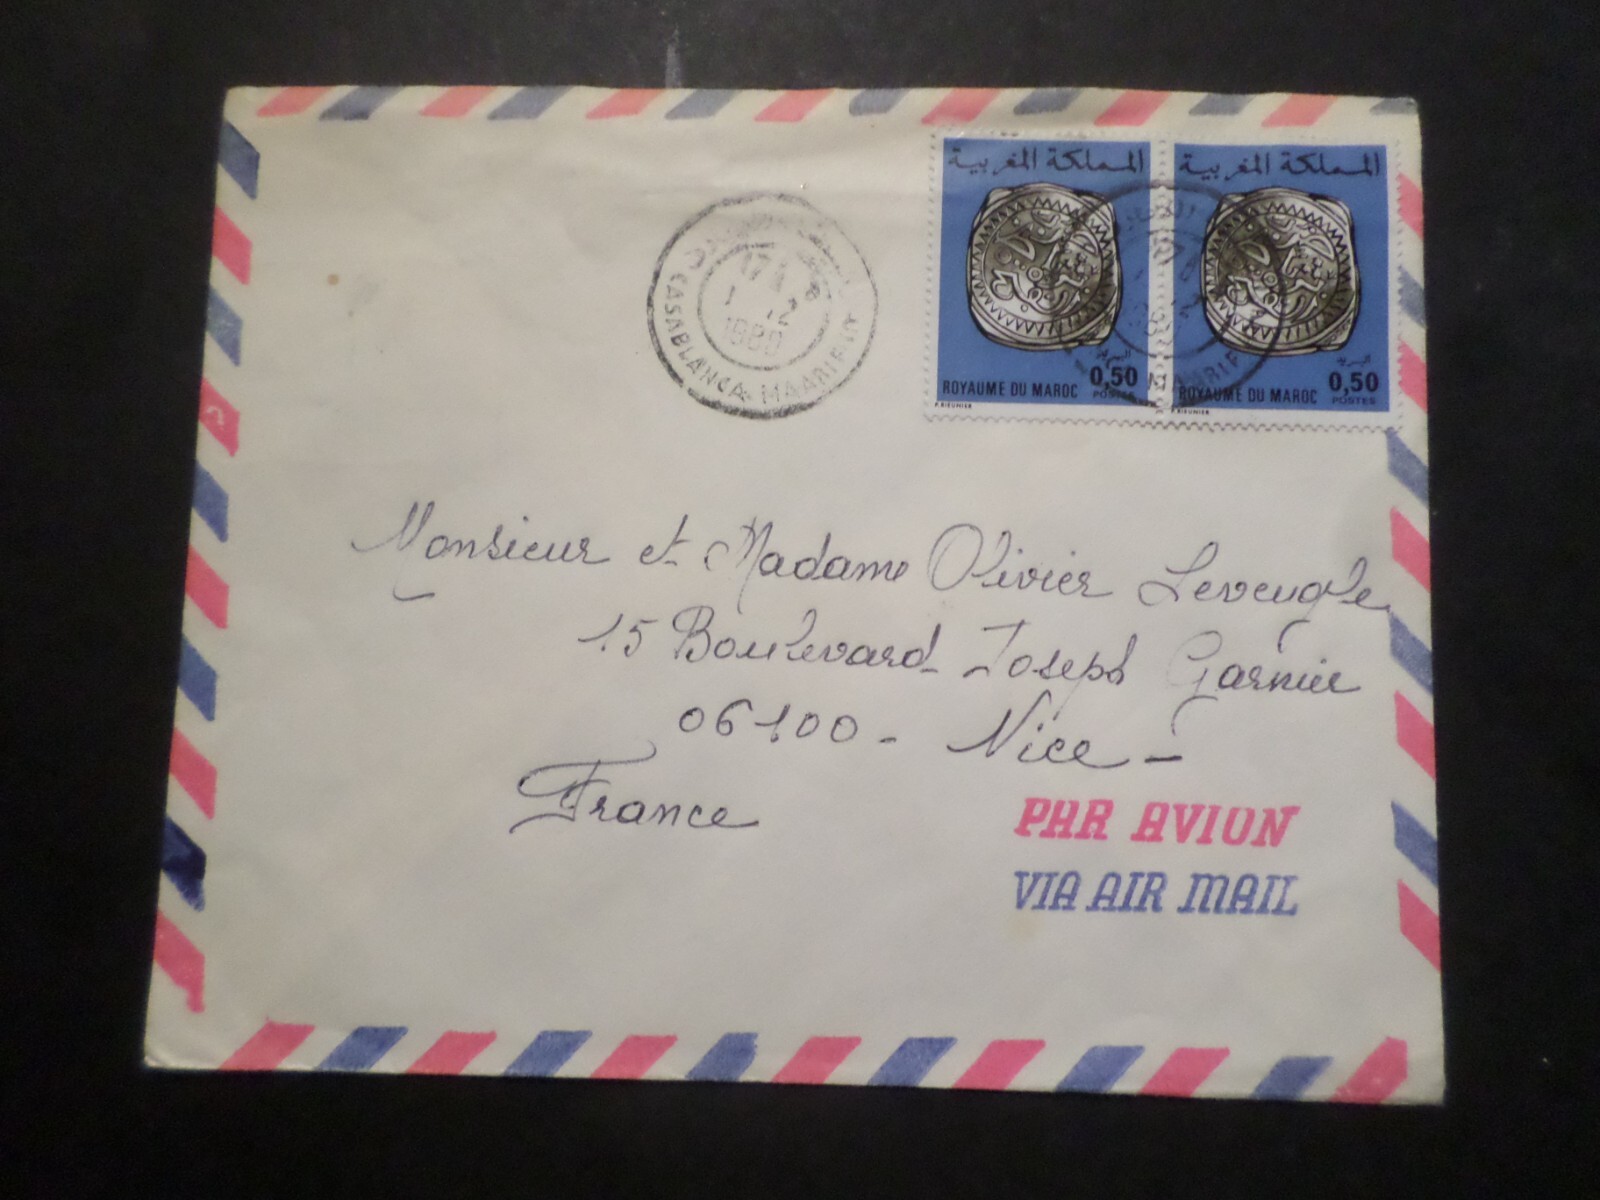 المملكة المغربية
البريد
0,50
ROYAUME DU MAROC
POSTES
P. BEUNIER
المملكة المغربية
البريد
0,50
ROYAUME DU MAROC
POSTES
P. BEUNIER
CASABLANCA-MAARIF
17
1 12
1980
MAARIF
Monsieur et Madame Olivier Leveugle
15 Boulevard Joseph Garnier
06100 - Nice -
France
PAR AVION
VIA AIR MAIL